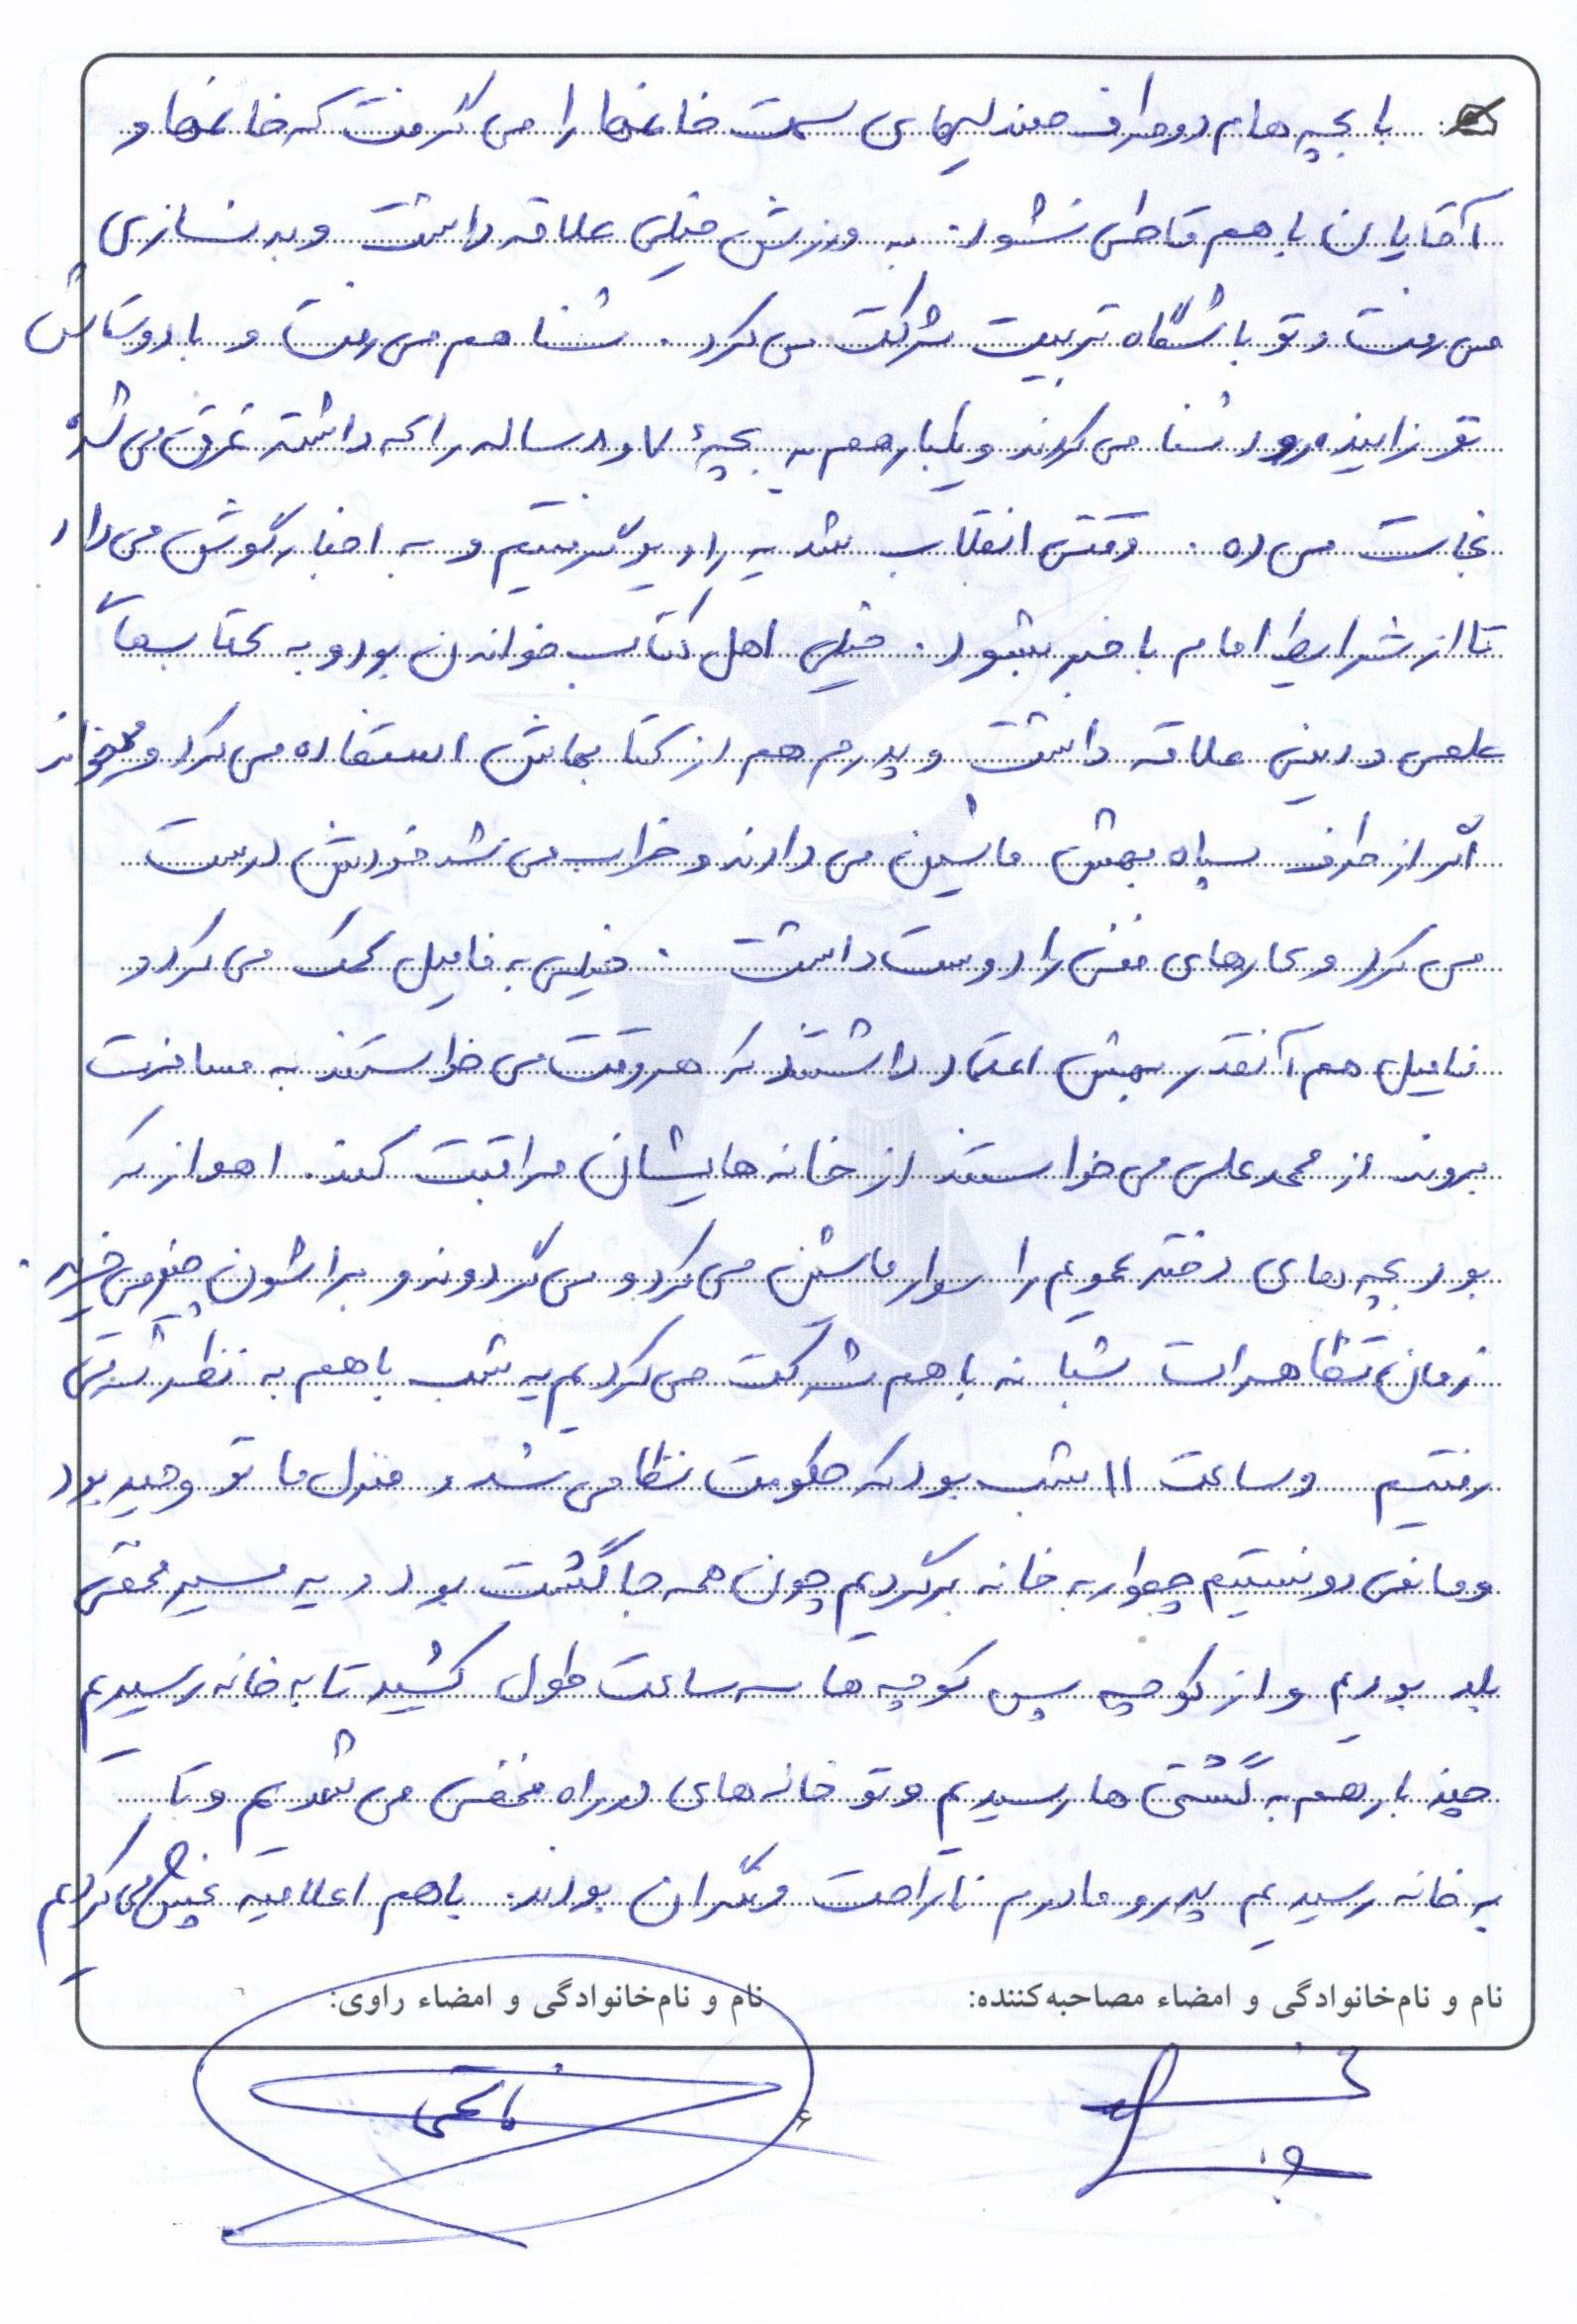 با بچه‌ها م دو طرف صندلیهای سمت خانمها را می گرفت که خانمها و
آقایان با هم قاطی نشود. به ورزش خیلی علاقه داشت و بدنسازی
می رفت و تو باشگاه تربیت شرکت می کرد. شنا هم می رفت و با دوستاش
تو زاینده رود شنا می کردند و یکبار هم یه بچهٔ ۷ و ۸ ساله را که داشته غرق می شد
نجات می ده. وقتی انقلاب شد یه رادیو گرفتیم و به اخبار گوش می داد
تا از شرایط امام با خبر بشود. خیلی اهل کتاب خواندن بود و به کتابهای
علمی و دینی علاقه داشت و پدرم هم از کتابهاش استفاده می کرد و میخواند
اگر از طرف سپاه بهش ماشین می دادند و خراب می شد خودش درست
می کرد و کارهای فنی را دوست داشت. خیلی به فامیل کمک می کرد و
فامیل هم آنقدر بهش اعتماد داشتند که هر وقت می خواستند به مسافرت
بروند از محمدعلی می خواستند از خانه هایشان مراقبت کند. اهواز که
بود بچه های دختر عمویم را سوار ماشین می کرد و می گردوند و براشون چیز می خرید.
زمان تظاهرات شبانه با هم شرکت می کردیم یه شب با هم به نظر شرقی
رفتیم و ساعت ۱۱ شب بود که حکومت نظامی شد و منزل ما تو وحید بود
و ما نمی دونستیم چطور به خانه برگردیم چون همه جا گشت بود و یه مسیر مخفی
بلد بودیم و از کوچه پس کوچه ها سه ساعت طول کشید تا به خانه رسیدیم
چند بار هم به گشتی ها رسیدیم و تو خانه های در راه مخفی می شدیم و تا
به خانه رسیدیم پدر و مادرم ناراحت و نگران بودند. با هم اعلامیه پخش می کردیم
نام و نام‌خانوادگی و امضاء مصاحبه‌کننده: نام و نام‌خانوادگی و امضاء راوی:
۶